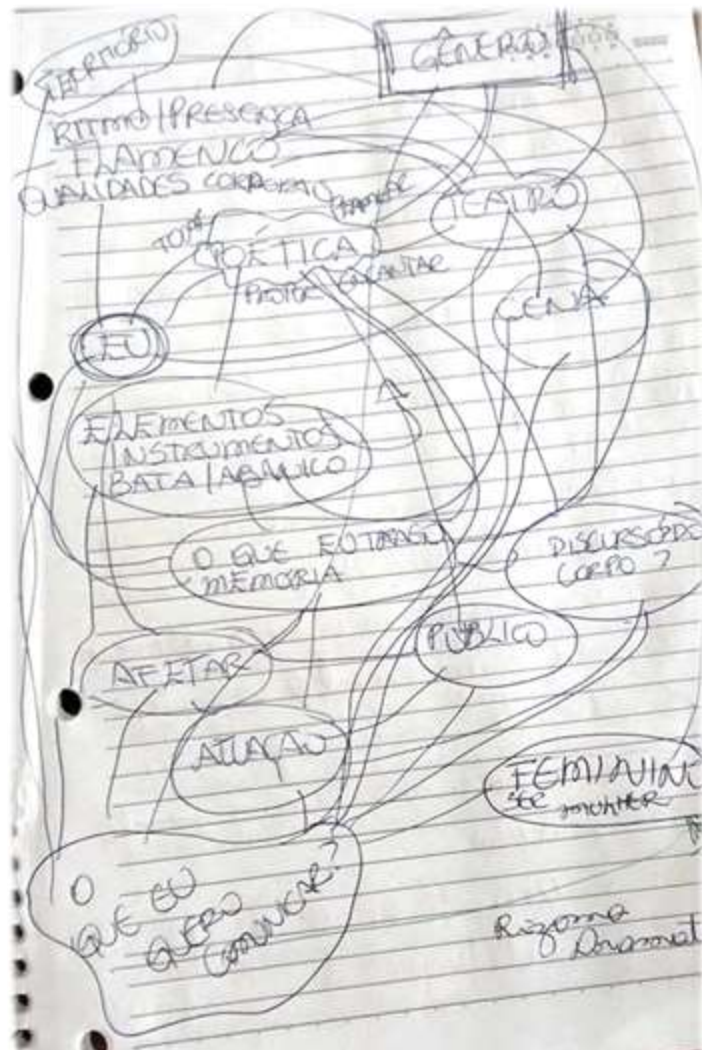 TERRITÓRIO
GÊNERO
RITMO/PRESENÇA
FLAMENCO
QUALIDADES CORPORAIS
TEATRO
POÉTICA
CANTAR
CENA
EU
ELEMENTOS
INSTRUMENTOS
BATA/ABANICO
O QUE EU TRAGO
MEMÓRIA
DISCURSO DO
CORPO?
PÚBLICO
AFETAR
ATUAÇÃO
FEMININ
SER MULHER
O
QUE EU
QUERO
COMUNICAR?
Rizoma
Dramat